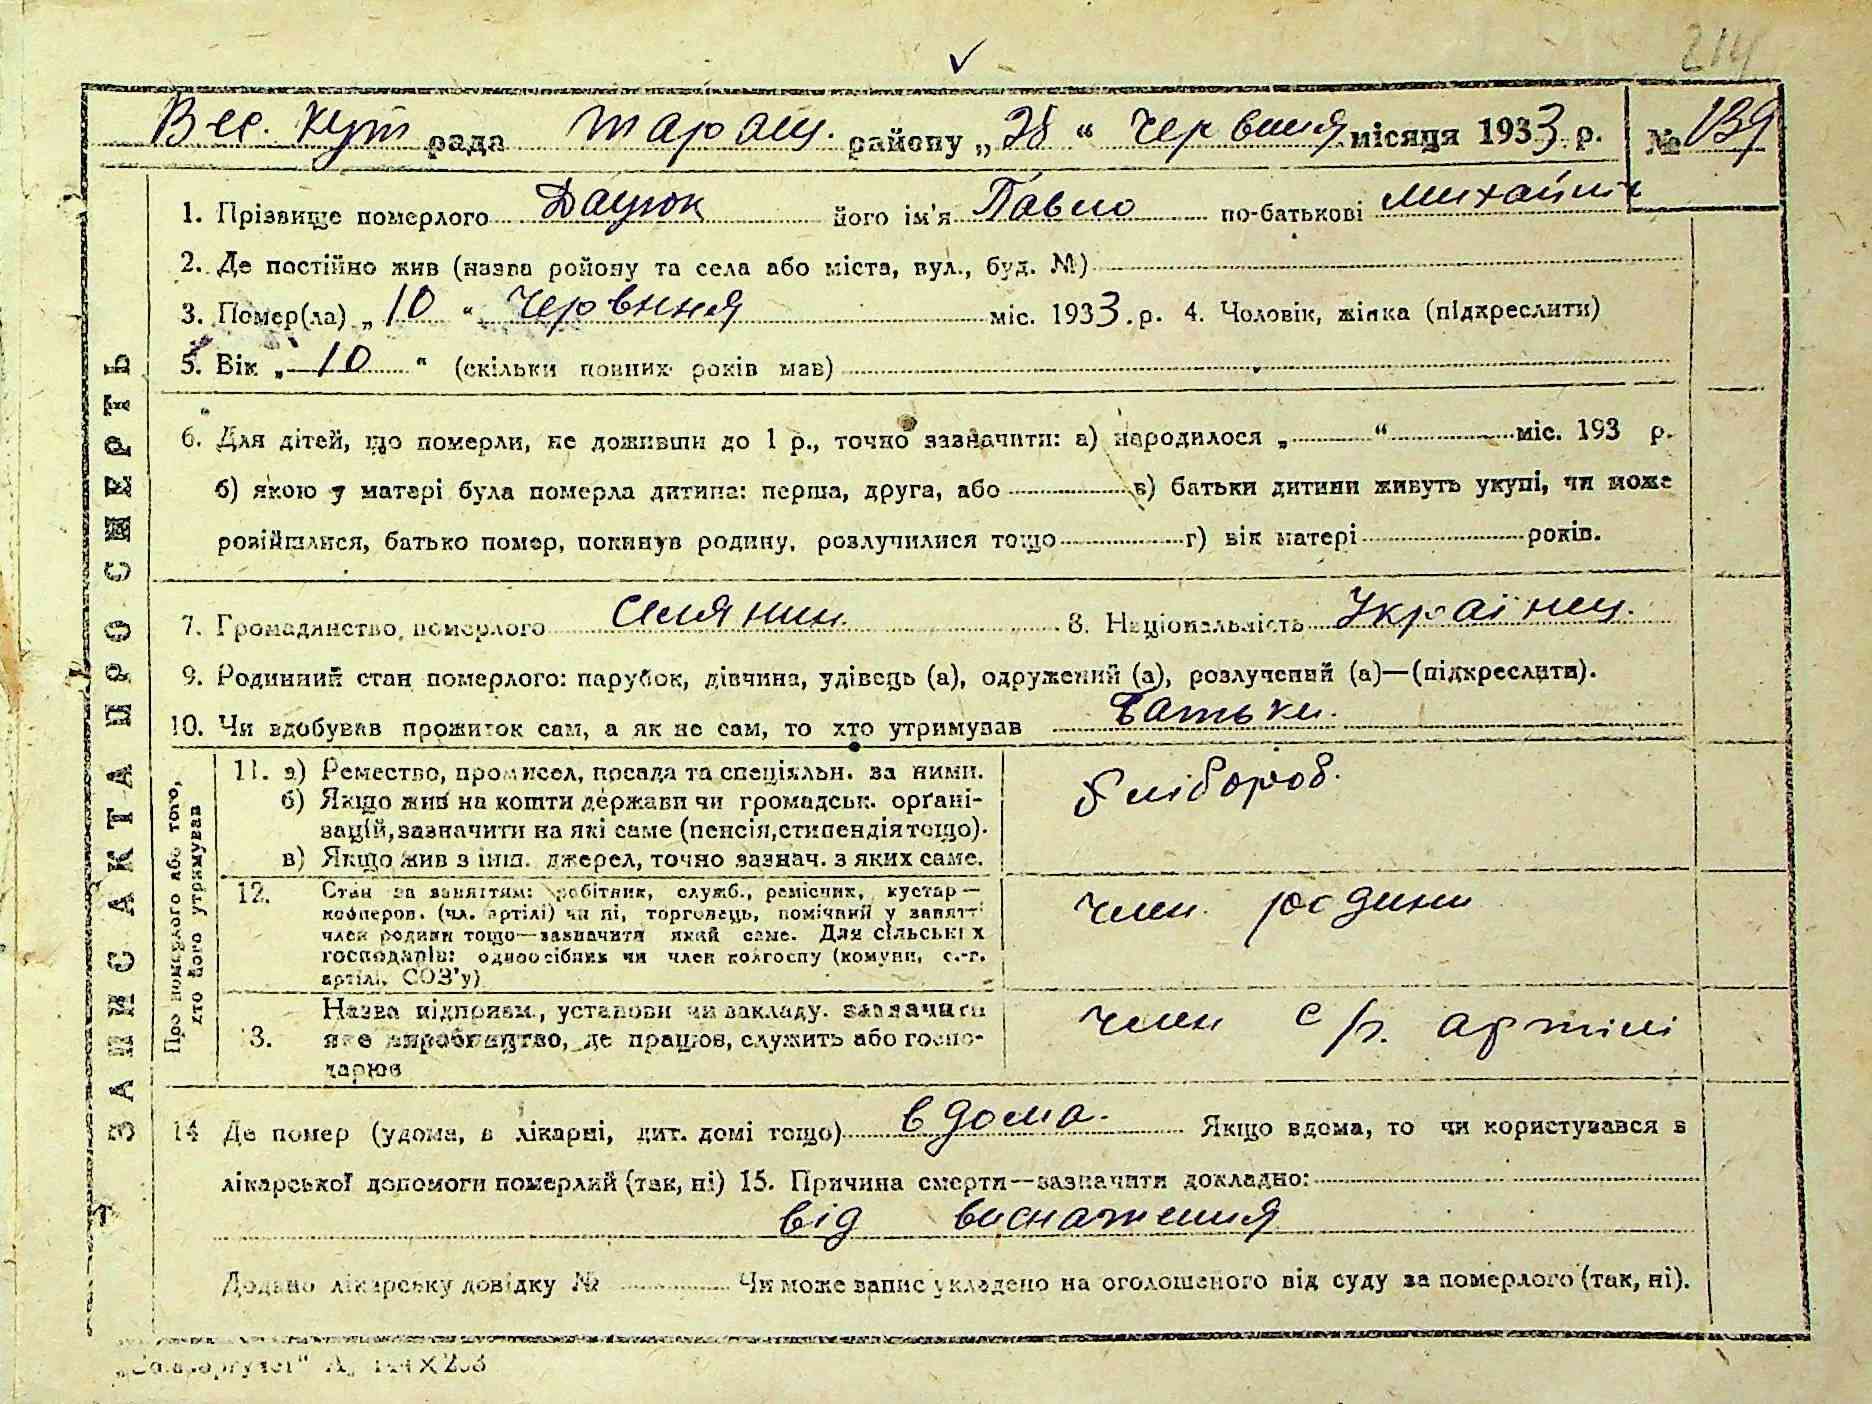 214
Вес. Кут рада Таращ. району „28“ Червиня місяця 1933 р. № 139
1. Прізвище померлого Дацюк його ім'я Павло по-батькові Михайл
2. Де постійно жив (назва ройону та села або міста, вул., буд. №)
3. Помер(ла) „10“ Червиня міс. 1933 р. 4. Чоловік, жінка (підкреслити)
5. Вік „10“ (скільки повних років мав)
6. Для дітей, що померли, не доживши до 1 р., точно зазначити: а) народилося „ “ міс. 193 р.
б) якою у матері була померла дитина: перша, друга, або в) батьки дитини живуть укупі, чи може
розійшлися, батько помер, покинув родину, розлучилися тощо г) вік матері років.
7. Громадянство померлого Селянин 8. Національність Українец.
9. Родинний стан померлого: парубок, дівчина, удівець (а), одружений (а), розлучений (а)—(підкреслити).
10. Чи здобував прожиток сам, а як не сам, то хто утримував Батьки.
ЗАПИС АКТА ПРО СМЕРТЬ
Про померлого або того,
хто його утримував
11. а) Ремество, промисел, посада та спеціяльн. за ними.
б) Якщо жив на кошти держави чи громадськ. орґані-
зацій, зазначити на які саме (пенсія, стипендія тощо).
в) Якщо жив з інш. джерел, точно зазнач. з яких саме.
хлібороб.
12. Стан за заняттям: робітник, служб., ремісник, кустар—
кооперов. (чл. артілі) чи ні, торговець, помічний у занятті
член родини тощо—зазначити який саме. Для сільських
господарів: одноосібник чи член колгоспу (комуни, с.-г.
артілі, СОЗ'у)
член родини
13. Назва підприєм., установи чи закладу. зазначити
яке виробництво, де працюв, служить або госпо-
дарюв
член с/г. артілі
14 Де помер (удома, в лікарні, дит. домі тощо) вдома. Якщо вдома, то чи користувався з
лікарської допомоги померлий (так, ні) 15. Причина смерти—зазначити докладно:
від виснаження
Додано лікарську довідку № Чи може запис укладено на оголошеного від суду за померлого (так, ні).